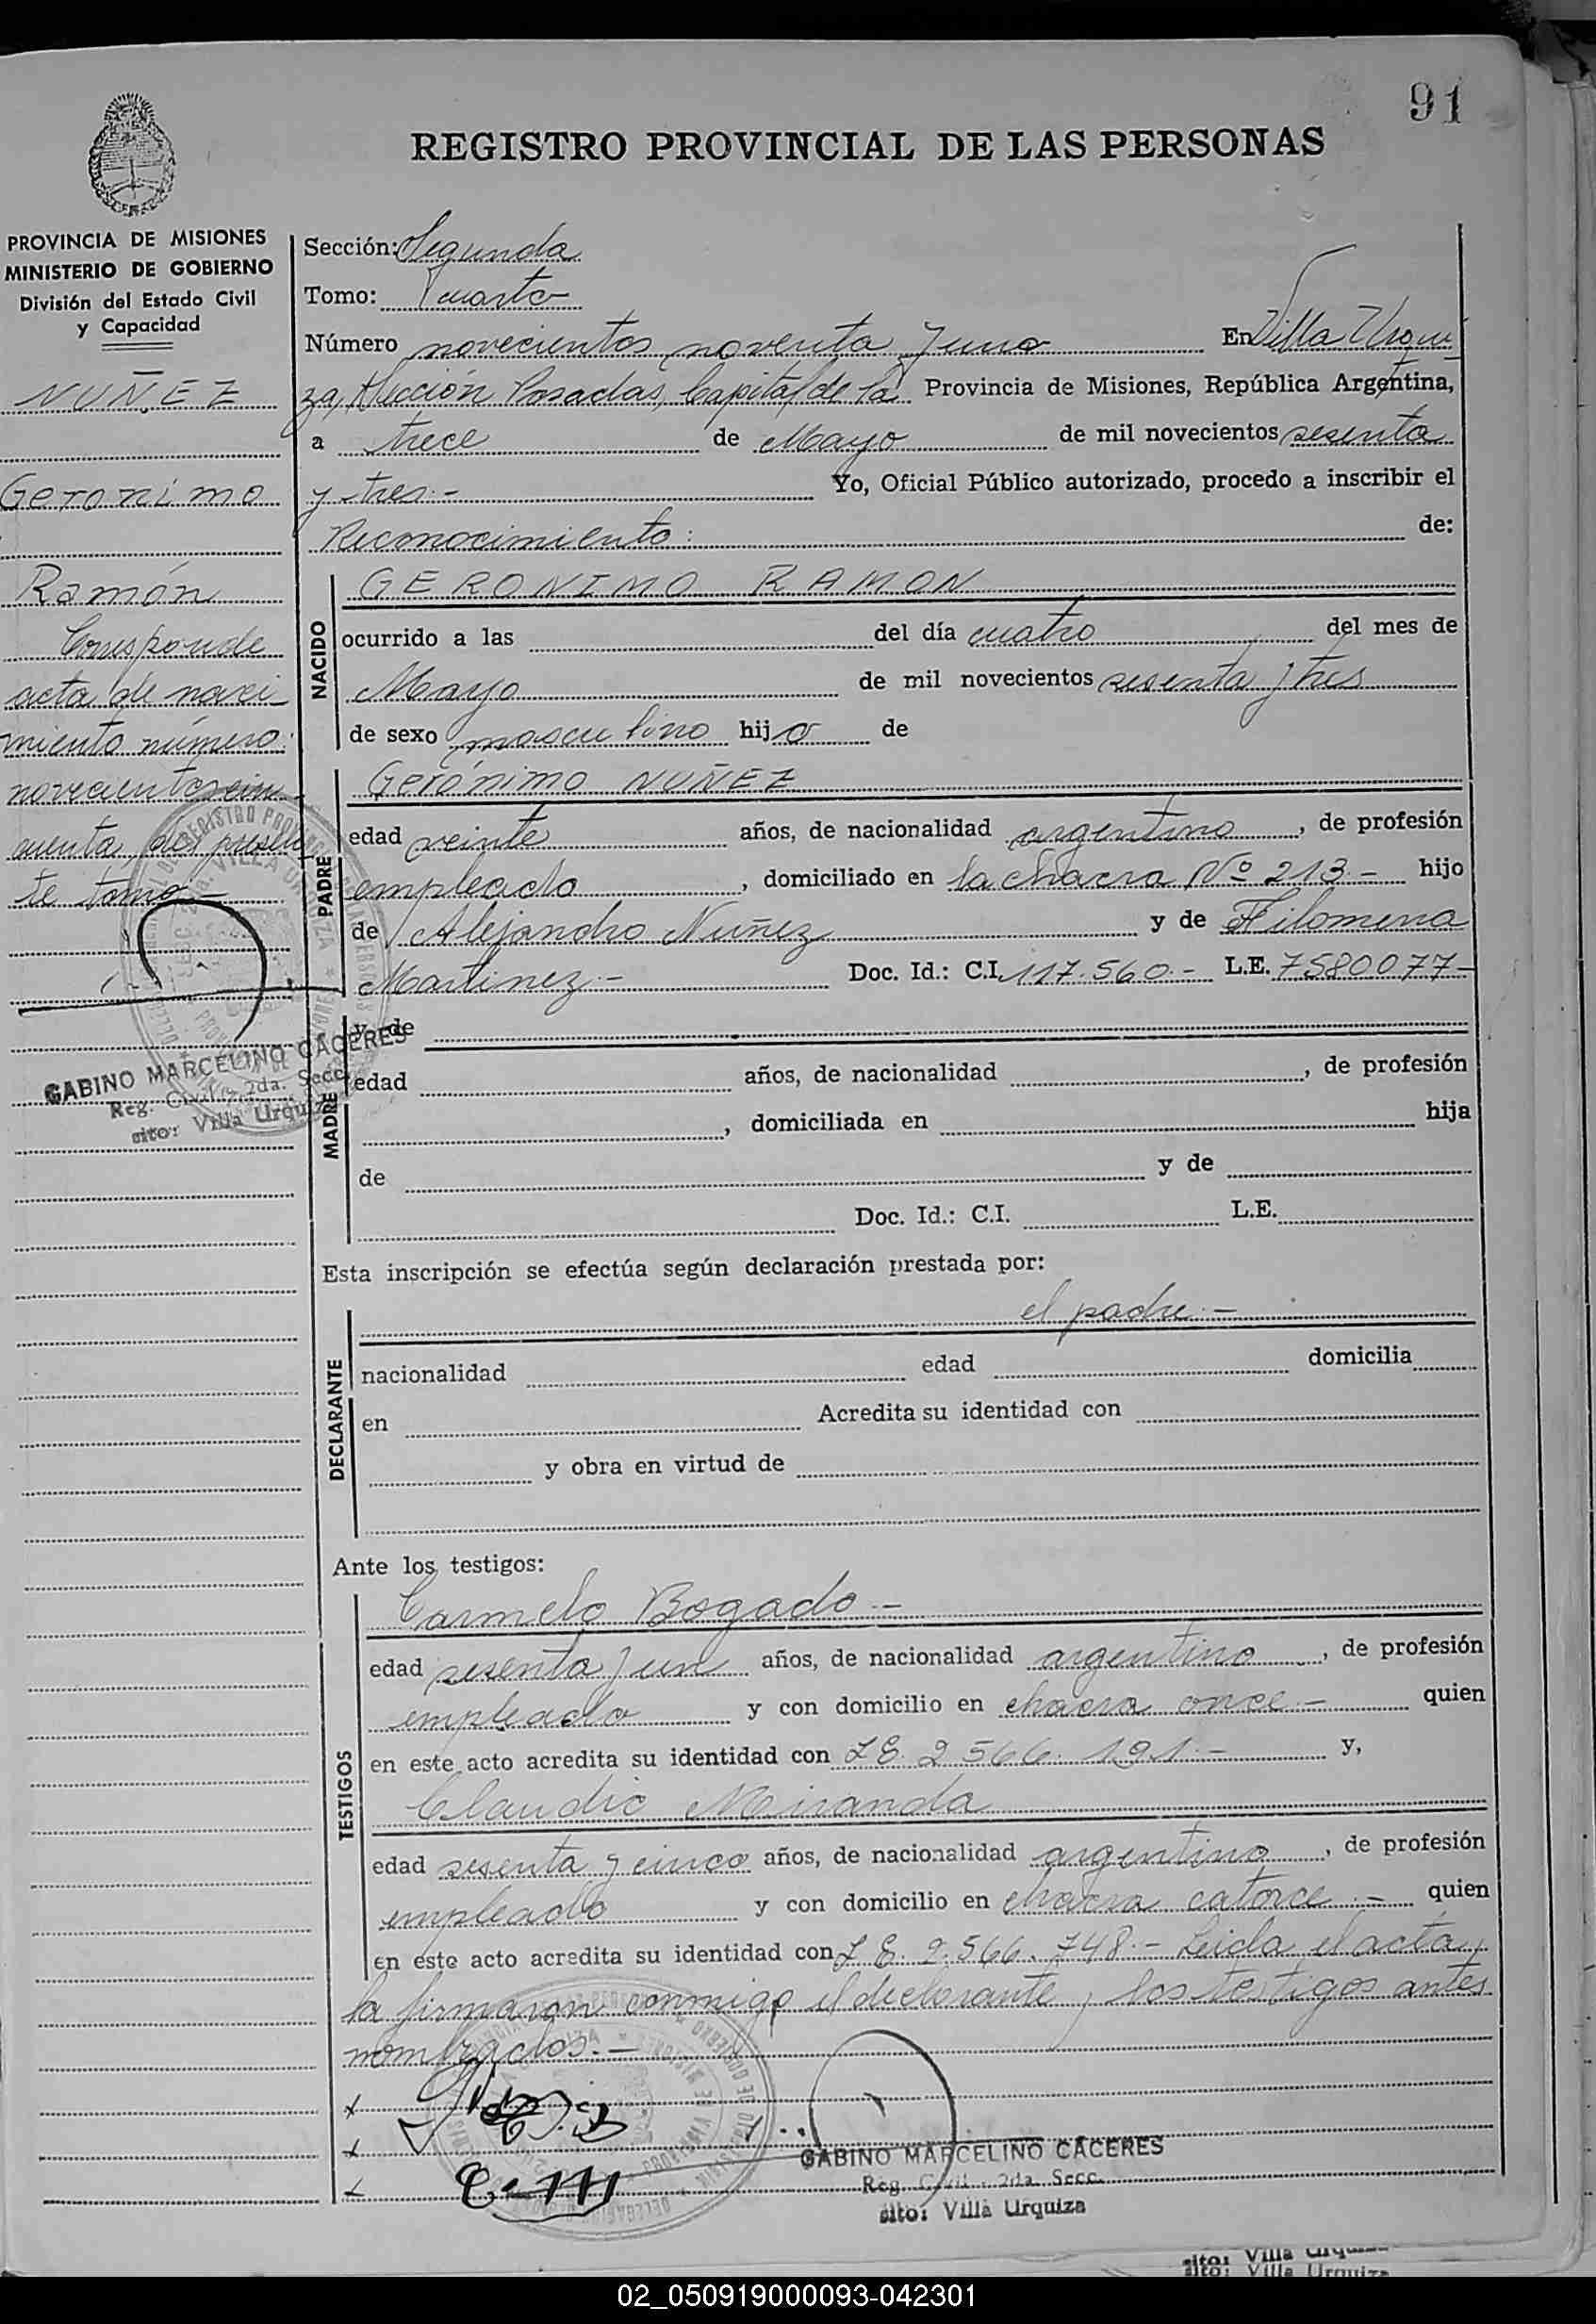 91
REGISTRO PROVINCIAL DE LAS PERSONAS
PROVINCIA DE MISIONES
MINISTERIO DE GOBIERNO
División del Estado Civil
y Capacidad
NUÑEZ
Geronimo
Ramón
Corresponde
acta de naci-
miento número:
novecientos cin-
cuenta, del presen-
te tomo.-
GABINO MARCELINO CACERES
Reg. Civil - 2da. Secc.
sito: Villa Urquiza
Sección: Segunda
Tomo: Cuarto
Número novecientos noventa y uno En Villa Urqui-
za, Sección Posadas, Capital de la Provincia de Misiones, República Argentina,
a trece de Mayo de mil novecientos sesenta
y tres.- Yo, Oficial Público autorizado, procedo a inscribir el
Reconocimiento: de:
NACIDO
GERONIMO RAMON
ocurrido a las del día cuatro del mes de
Mayo de mil novecientos sesenta y tres
de sexo masculino hijo de
PADRE
Gerónimo NUÑEZ
edad veinte años, de nacionalidad argentino, de profesión
empleado, domiciliado en la chacra Nº 213.- hijo
de Alejandro Nuñez y de Filomena
Martinez.- Doc. Id.: C.I. 117.560.- L.E. 7580077-
MADRE
y de
edad años, de nacionalidad , de profesión
, domiciliada en hija
de y de
Doc. Id.: C.I. L.E.
Esta inscripción se efectúa según declaración prestada por:
DECLARANTE
el padre.-
nacionalidad edad domicilia
en Acredita su identidad con
y obra en virtud de
Ante los testigos:
TESTIGOS
Carmelo Bogado.-
edad sesenta y un años, de nacionalidad argentino, de profesión
empleado y con domicilio en chacra once.- quien
en este acto acredita su identidad con L.E. 2.566.191.- y,
Claudio Miranda
edad sesenta y cinco años, de nacionalidad argentino, de profesión
empleado y con domicilio en chacra catorce.- quien
en este acto acredita su identidad con L.E. 2.566.748.- Leida el acta,
la firmaron conmigo el declarante y los testigos antes
nombrados.-
GABINO MARCELINO CACERES
Reg. Civil - 2da. Secc.
sito: Villa Urquiza
sito: Villa Urquiza
sito: Villa Urquiza
02_050919000093-042301